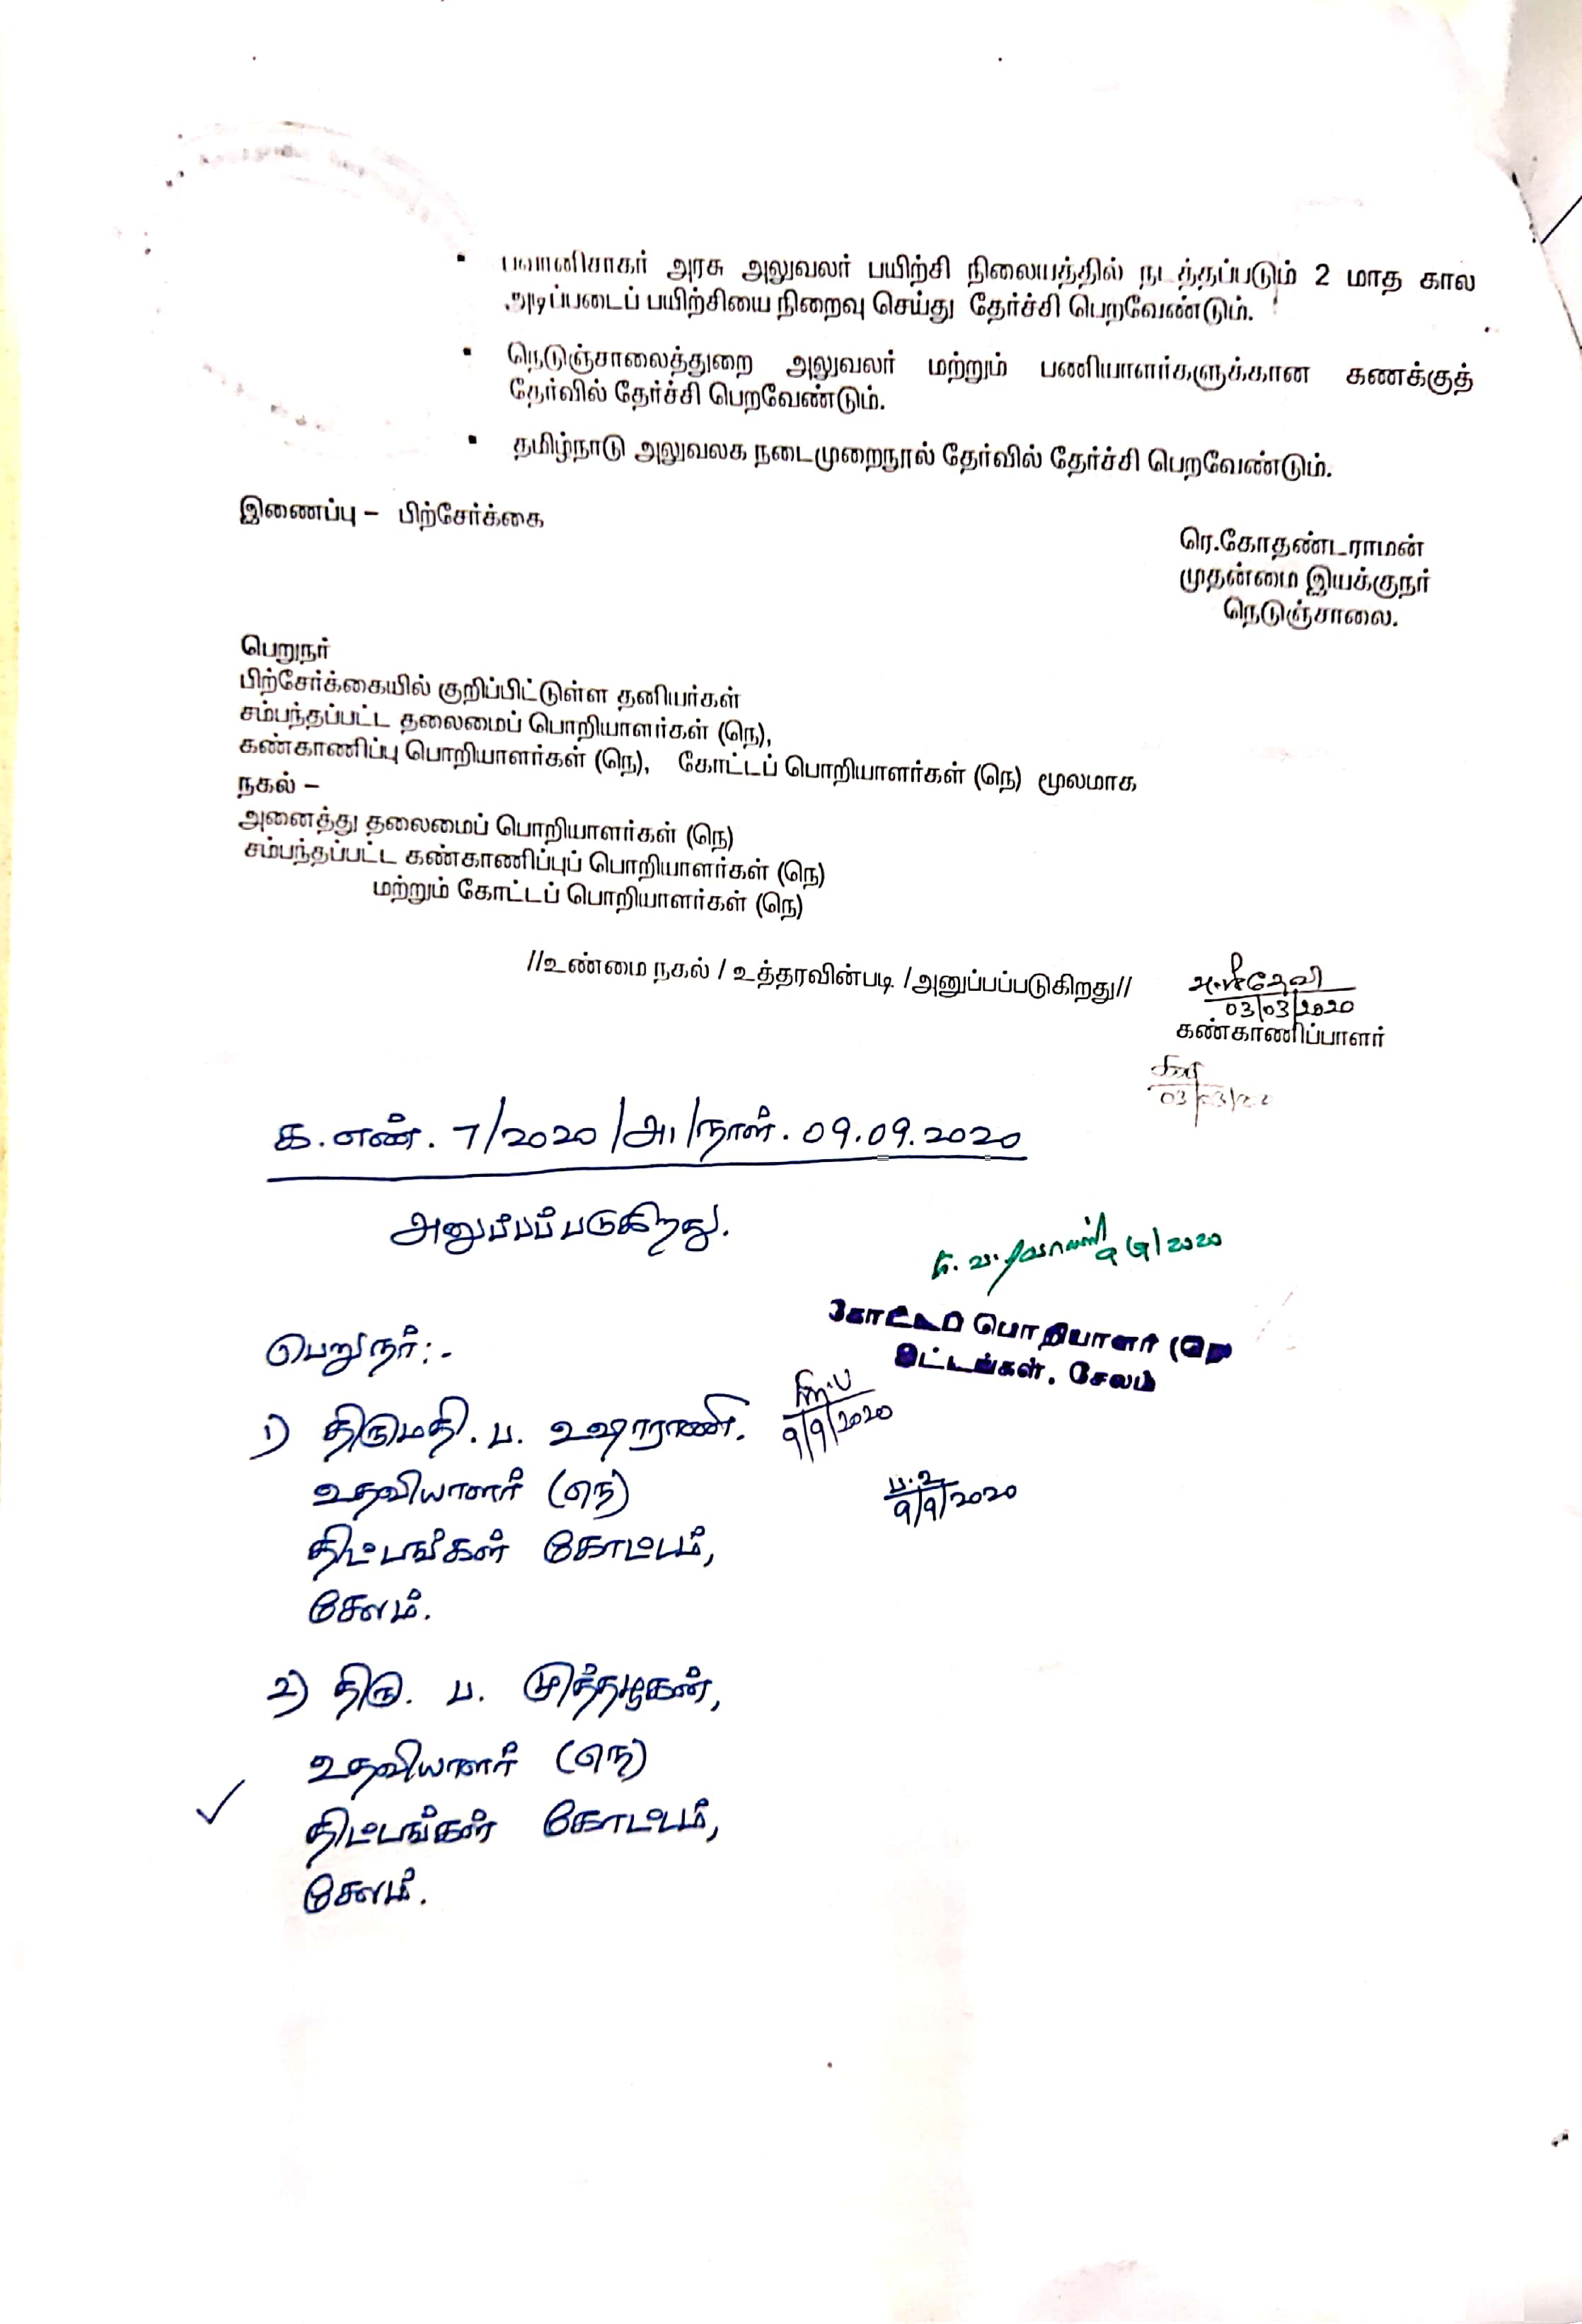 பவானிசாகர் அரசு அலுவலர் பயிற்சி நிலையத்தில் நடத்தப்படும் 2 மாத கால
அடிப்படைப் பயிற்சியை நிறைவு செய்து தேர்ச்சி பெறவேண்டும்.
நெடுஞ்சாலைத்துறை அலுவலர் மற்றும் பணியாளர்களுக்கான கணக்குத்
தேர்வில் தேர்ச்சி பெறவேண்டும்.
தமிழ்நாடு அலுவலக நடைமுறைநூல் தேர்வில் தேர்ச்சி பெறவேண்டும்.
இணைப்பு – பிற்சேர்க்கை
ரெ.கோதண்டராமன்
முதன்மை இயக்குநர்
நெடுஞ்சாலை.
பெறுநர்
பிற்சேர்க்கையில் குறிப்பிட்டுள்ள தனியர்கள்
சம்பந்தப்பட்ட தலைமைப் பொறியாளர்கள் (நெ),
கண்காணிப்பு பொறியாளர்கள் (நெ), கோட்டப் பொறியாளர்கள் (நெ) மூலமாக
நகல் –
அனைத்து தலைமைப் பொறியாளர்கள் (நெ)
சம்பந்தப்பட்ட கண்காணிப்புப் பொறியாளர்கள் (நெ)
மற்றும் கோட்டப் பொறியாளர்கள் (நெ)
//உண்மை நகல் / உத்தரவின்படி /அனுப்பப்படுகிறது//
03/03/2020
கண்காணிப்பாளர்
க.எண். 7/2020/அ1/நாள். 09.09.2020
அனுப்பப்படுகிறது.
கோட்டப் பொறியாளர் (நெ)
திட்டங்கள், சேலம்
பெறுநர்:-
1) திருமதி. ப. உஷாராணி.
9/9/2020
உதவியாளர் (நெ)
ப.உ
9/9/2020
திட்டங்கள் கோட்டம்,
சேலம்.
2) திரு. ப. முத்தழகன்,
உதவியாளர் (நெ)
திட்டங்கள் கோட்டம்,
சேலம்.